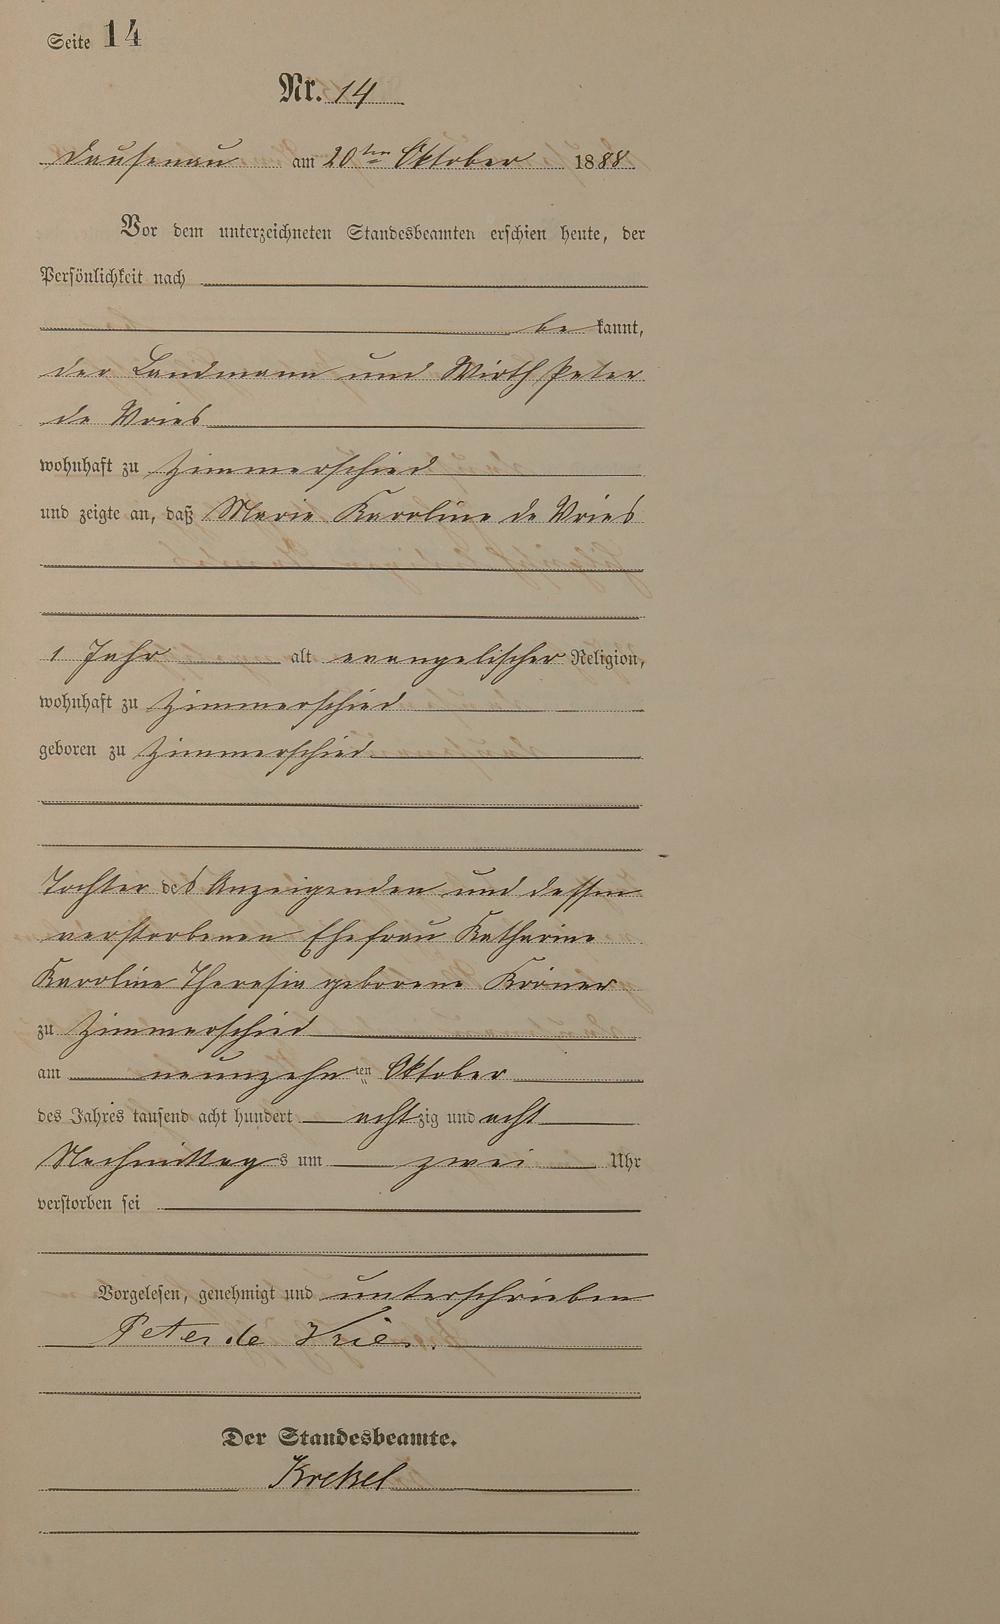 Seite 14
Nr. 14
Dausenau am 20ten Oktober 1888
Vor dem unterzeichneten Standesbeamten erschien heute, der
Persönlichkeit nach
be kannt,
der Landmann und Wirth Peter
de Vries
wohnhaft zu Zimmerschied
und zeigte an, daß Marie Karoline de Vries
1 Jahr alt evangelischer Religion,
wohnhaft zu Zimmerschied
geboren zu Zimmerschied
Tochter des Anzeigenden und dessen
verstorbenen Ehefrau Katharine
Karoline Theresia geborene Kröner
zu Zimmerschied
am neunzehn ten Oktober
des Jahres tausend acht hundert achtzig und acht
Nachmittags um zwei Uhr
verstorben sei
Vorgelesen, genehmigt und unterschrieben
Peter de Vries.
Der Standesbeamte.
Krekel